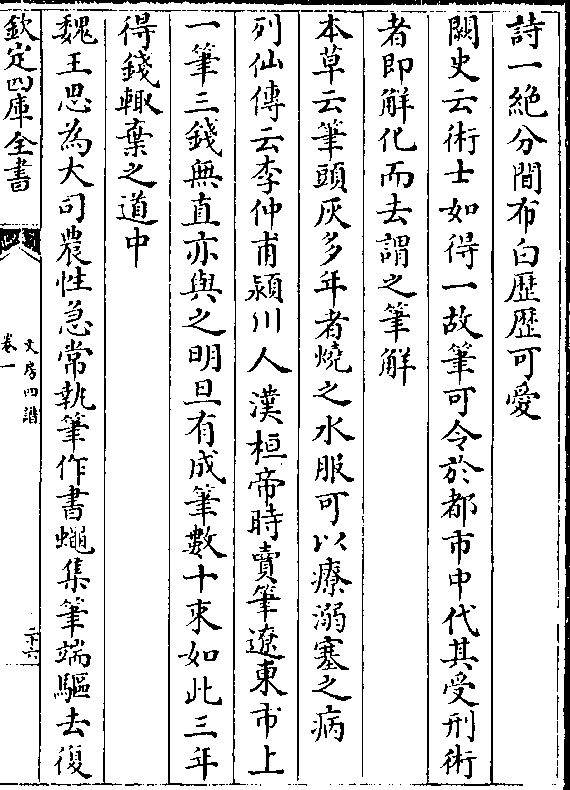 詩一絶分間布白歴歴可愛
闕史云術士如得一故筆可令於都市中代其受刑術
者即解化而去謂之筆解
本草云筆頭灰多年者燒之水服可以療溺塞之病
列仙傳云李仲甫潁川人漢桓帝時賣筆遼東市上
一筆三錢無直亦與之明旦有成筆數十束如此三年
得錢輙棄之道中
魏王思為大司農性急常執筆作書蠅集筆端驅去復
欽定四庫全書
文房四譜
卷一
二十六